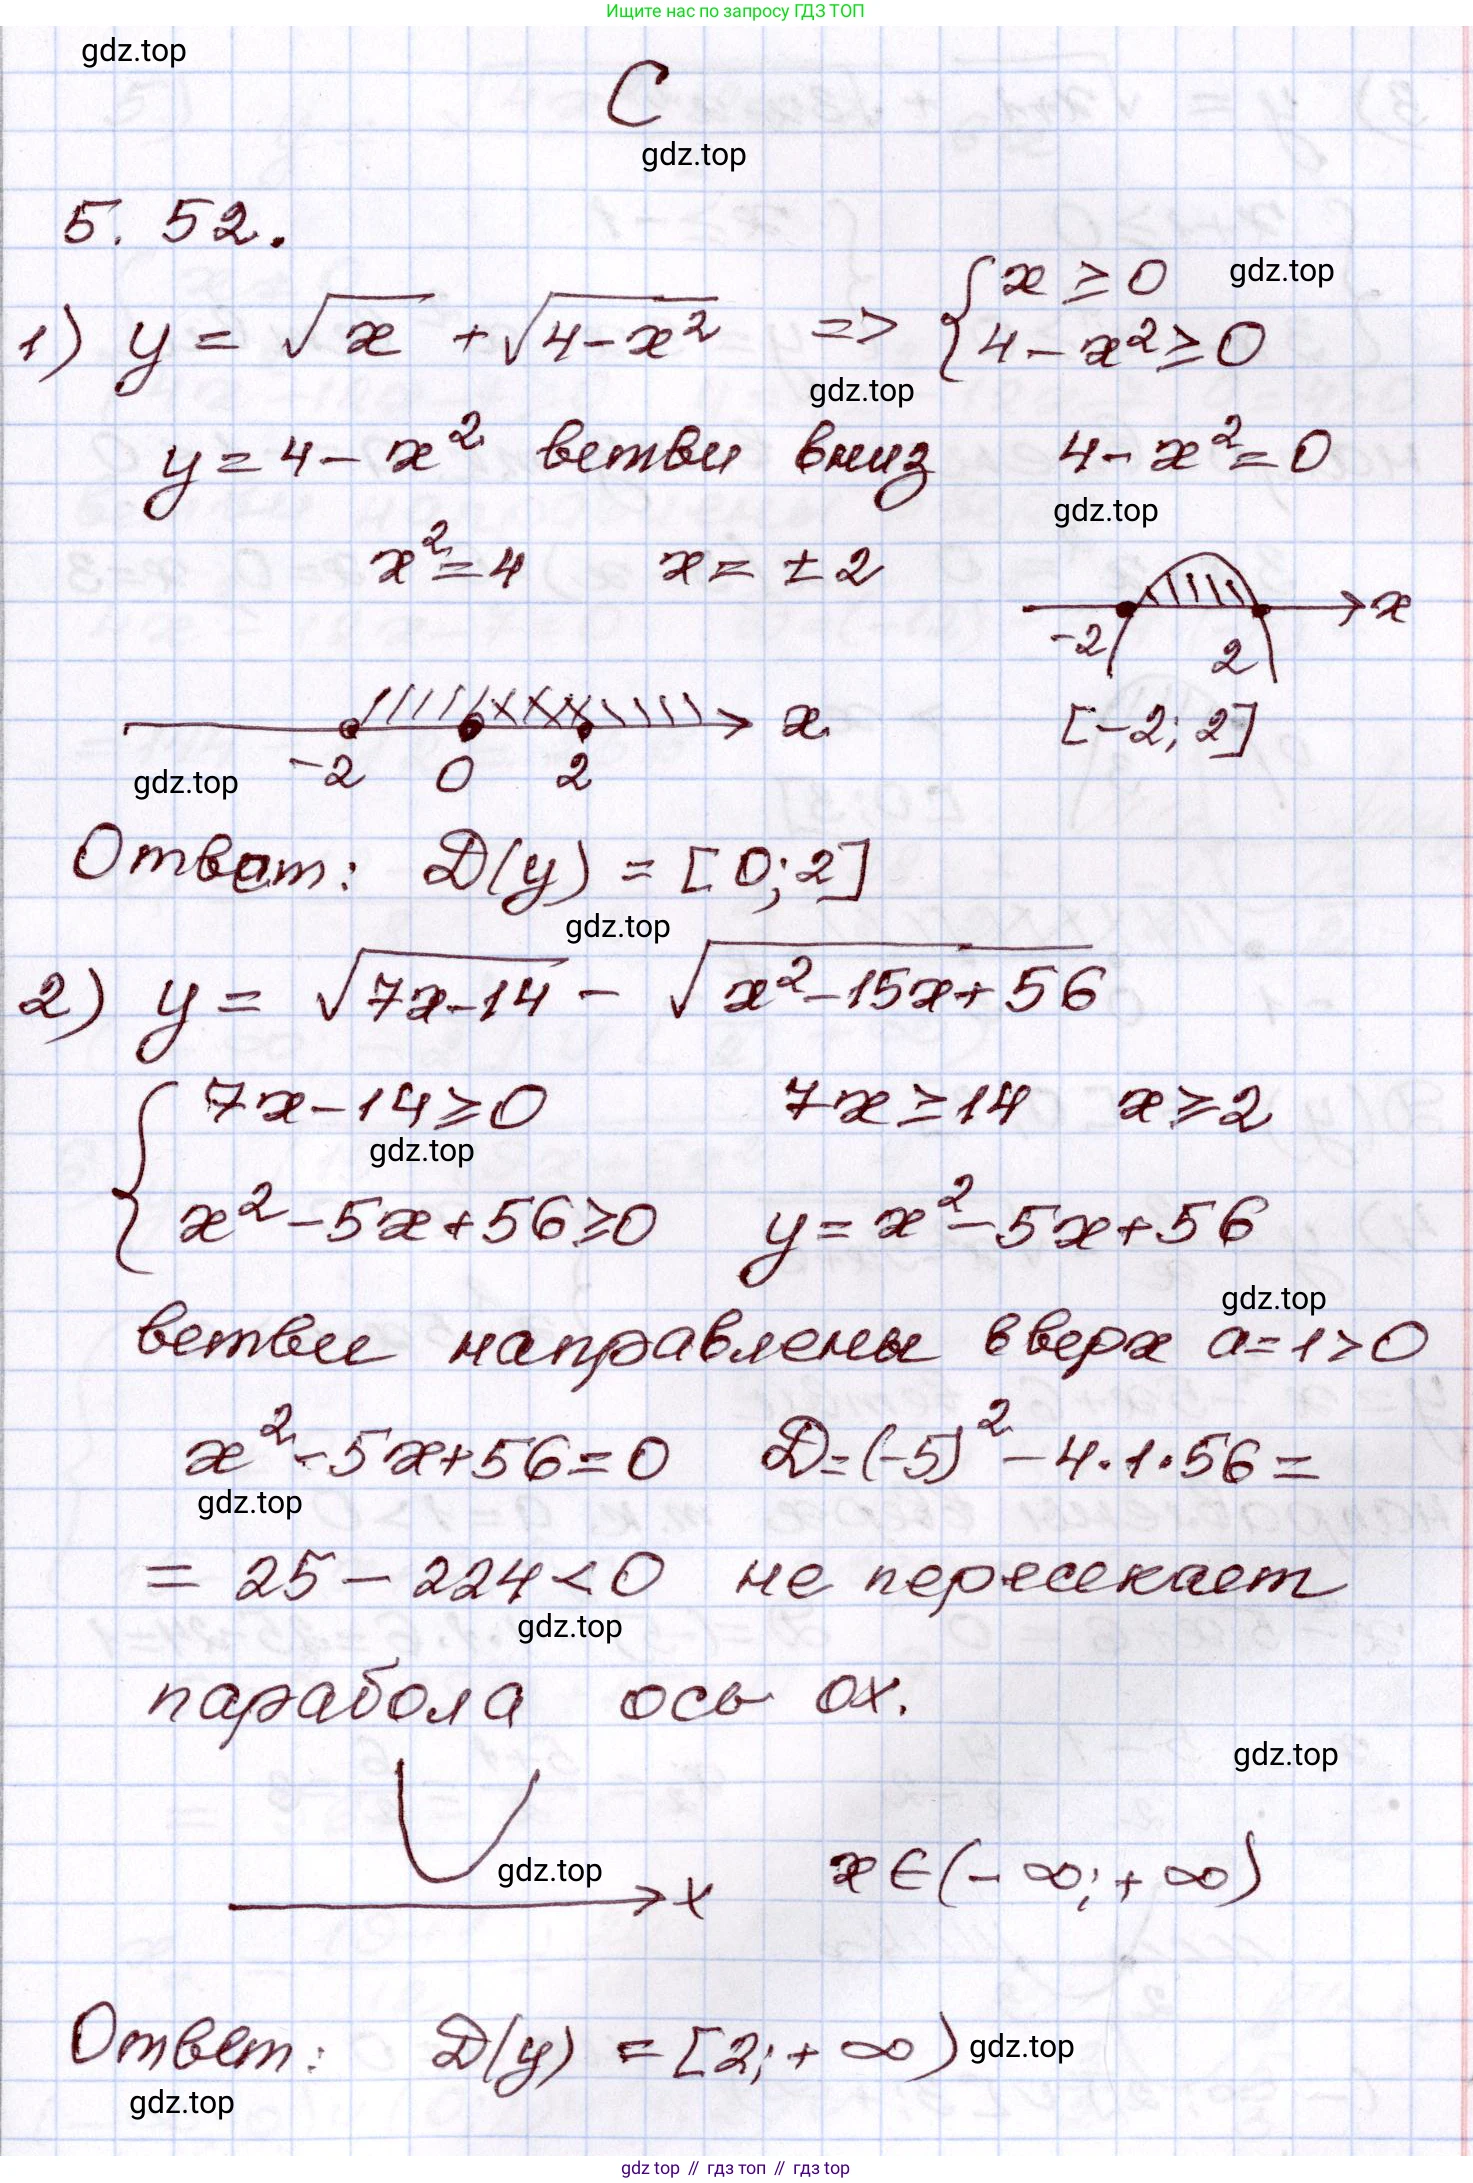 Ищите нас по запросу ГДЗ ТОП
gdz.top
С
gdz.top
5.52.
1) y = √x + √(4-x²) => { x ≥ 0 gdz.top
4-x² ≥ 0
gdz.top
y = 4-x² ветви вниз 4-x²=0
gdz.top
x²=4 x= ±2
x
-2 2
x
[-2; 2]
-2 0 2
gdz.top
Ответ: D(y) = [0; 2]
gdz.top
2) y = √(7x-14) - √(x²-15x+56)
{ 7x-14≥0 7x≥14 x≥2
gdz.top
x²-5x+56≥0 y=x²-5x+56
gdz.top
ветви направлены вверх a=1>0
x²-5x+56=0 D=(-5)²-4·1·56=
gdz.top
= 25-224<0 не пересекает
gdz.top
парабола ось ох.
gdz.top
gdz.top
x x∈(-∞;+∞)
Ответ: D(y) = [2;+∞) gdz.top
gdz.top
gdz top // гдз топ // гдз top